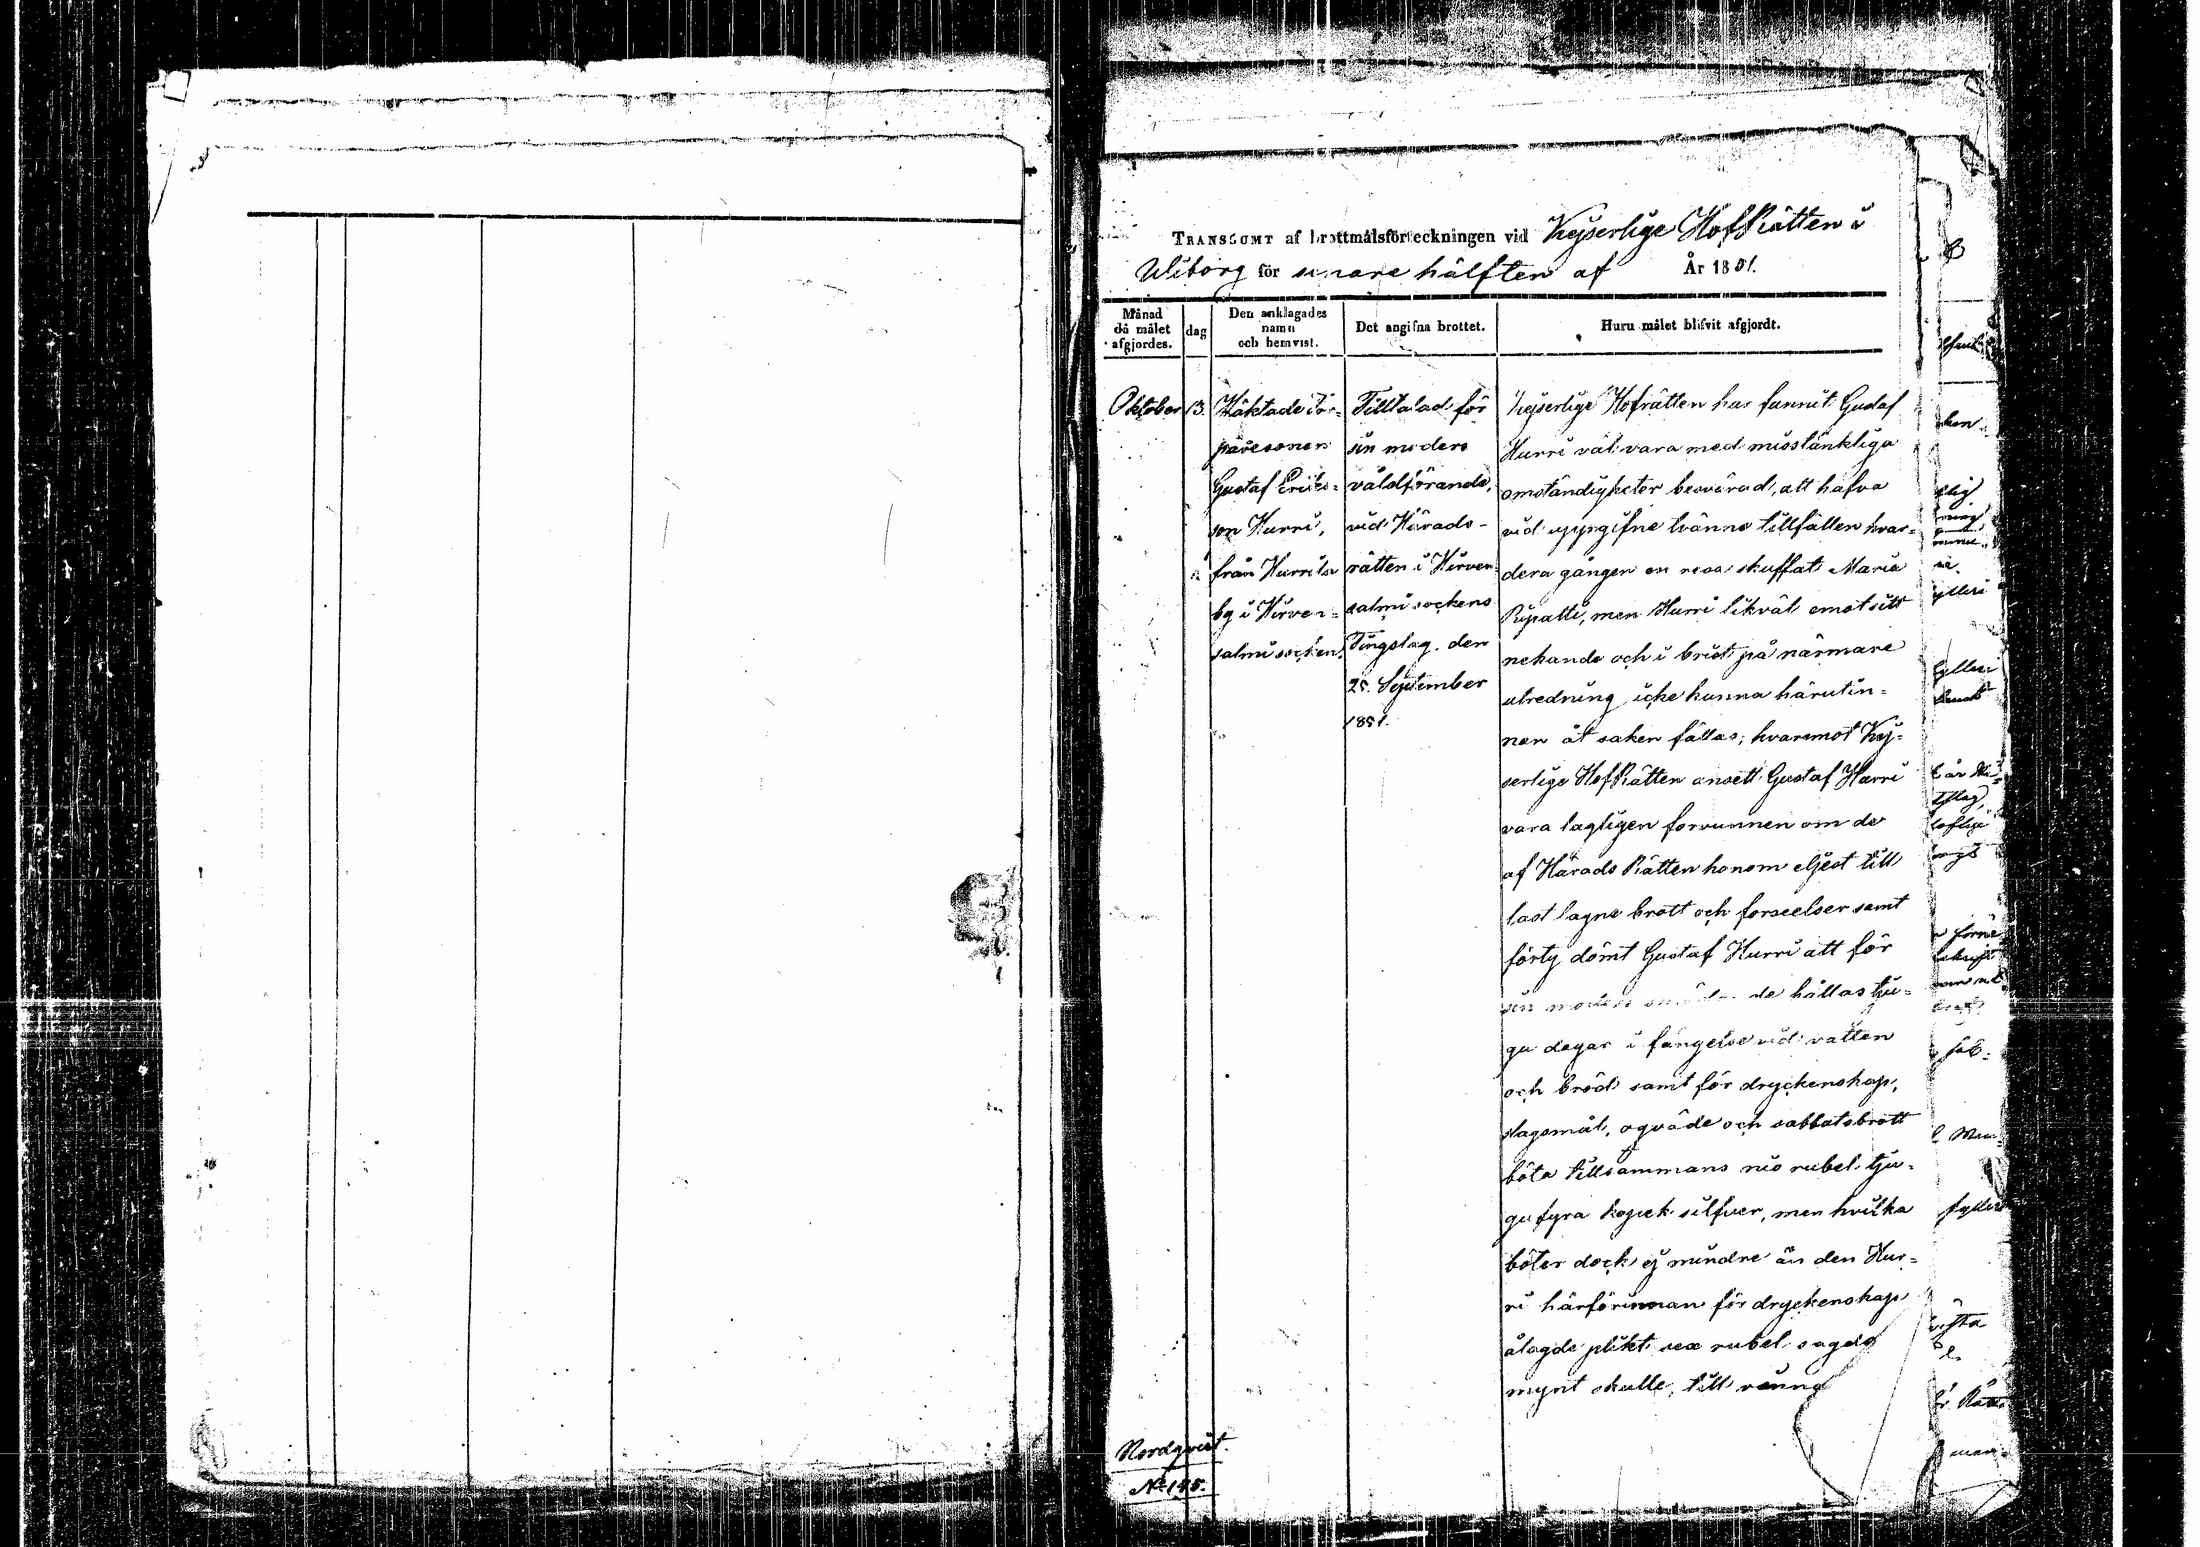 TRANSSUMT af brottmålsförteckningen vid Kejserlige HofRätten i
Wiborg för senare hälften af År 1851.
Månad
då målet
afgjordes.
dag
Den anklagades
namn
och hemvist.
Det angifna brottet.
Huru målet blifvit afgjordt.
Oktober
13.
Häktade Tor-
paresonen
Gustaf Eriks-
son Hurri,
från Hurrila
by i Hirven-
salmi socken.
Tilltalad för
sin moders
våldförande,
vid Härads-
rätten i Hirven
salmi sockens
Tingslag den
25. September
1851.
Kejserlige Hofrätten har funnit Gustaf
Hurri väl vara med misstänkliga
omständigheter besvärad, att hafva
vid uppgifne tvänne tillfällen hvar-
dera gången en resa skuffat Maria
Ripatti, men Hurri likväl emot sitt
nekande och i brist på närmare
utredning icke kunna härutin-
nan åt saken fällas; hvaremot Kej-
serlige HofRätten ansett Gustaf Hurri
vara lagligen forvunnen om de
af Härads Rätten honom eljest till
last lagne brott och forseelser samt
förty dömt Gustaf Hurri att för
sin moders de hållas tju-
gu dagar i fängelse vid vatten
och bröd samt för dryckenskap,
slagsmål, oqväde och sabbatsbrott
böta tillsammans nio rubel tju-
gufyra kopek silfver, men hvilka
böter dock ej mindre än den Hur-
ri härförinnan för dryckenskap
ålagde plikt sex rubel sagde
mynt skulle, till
Nordqvist.
No 195.